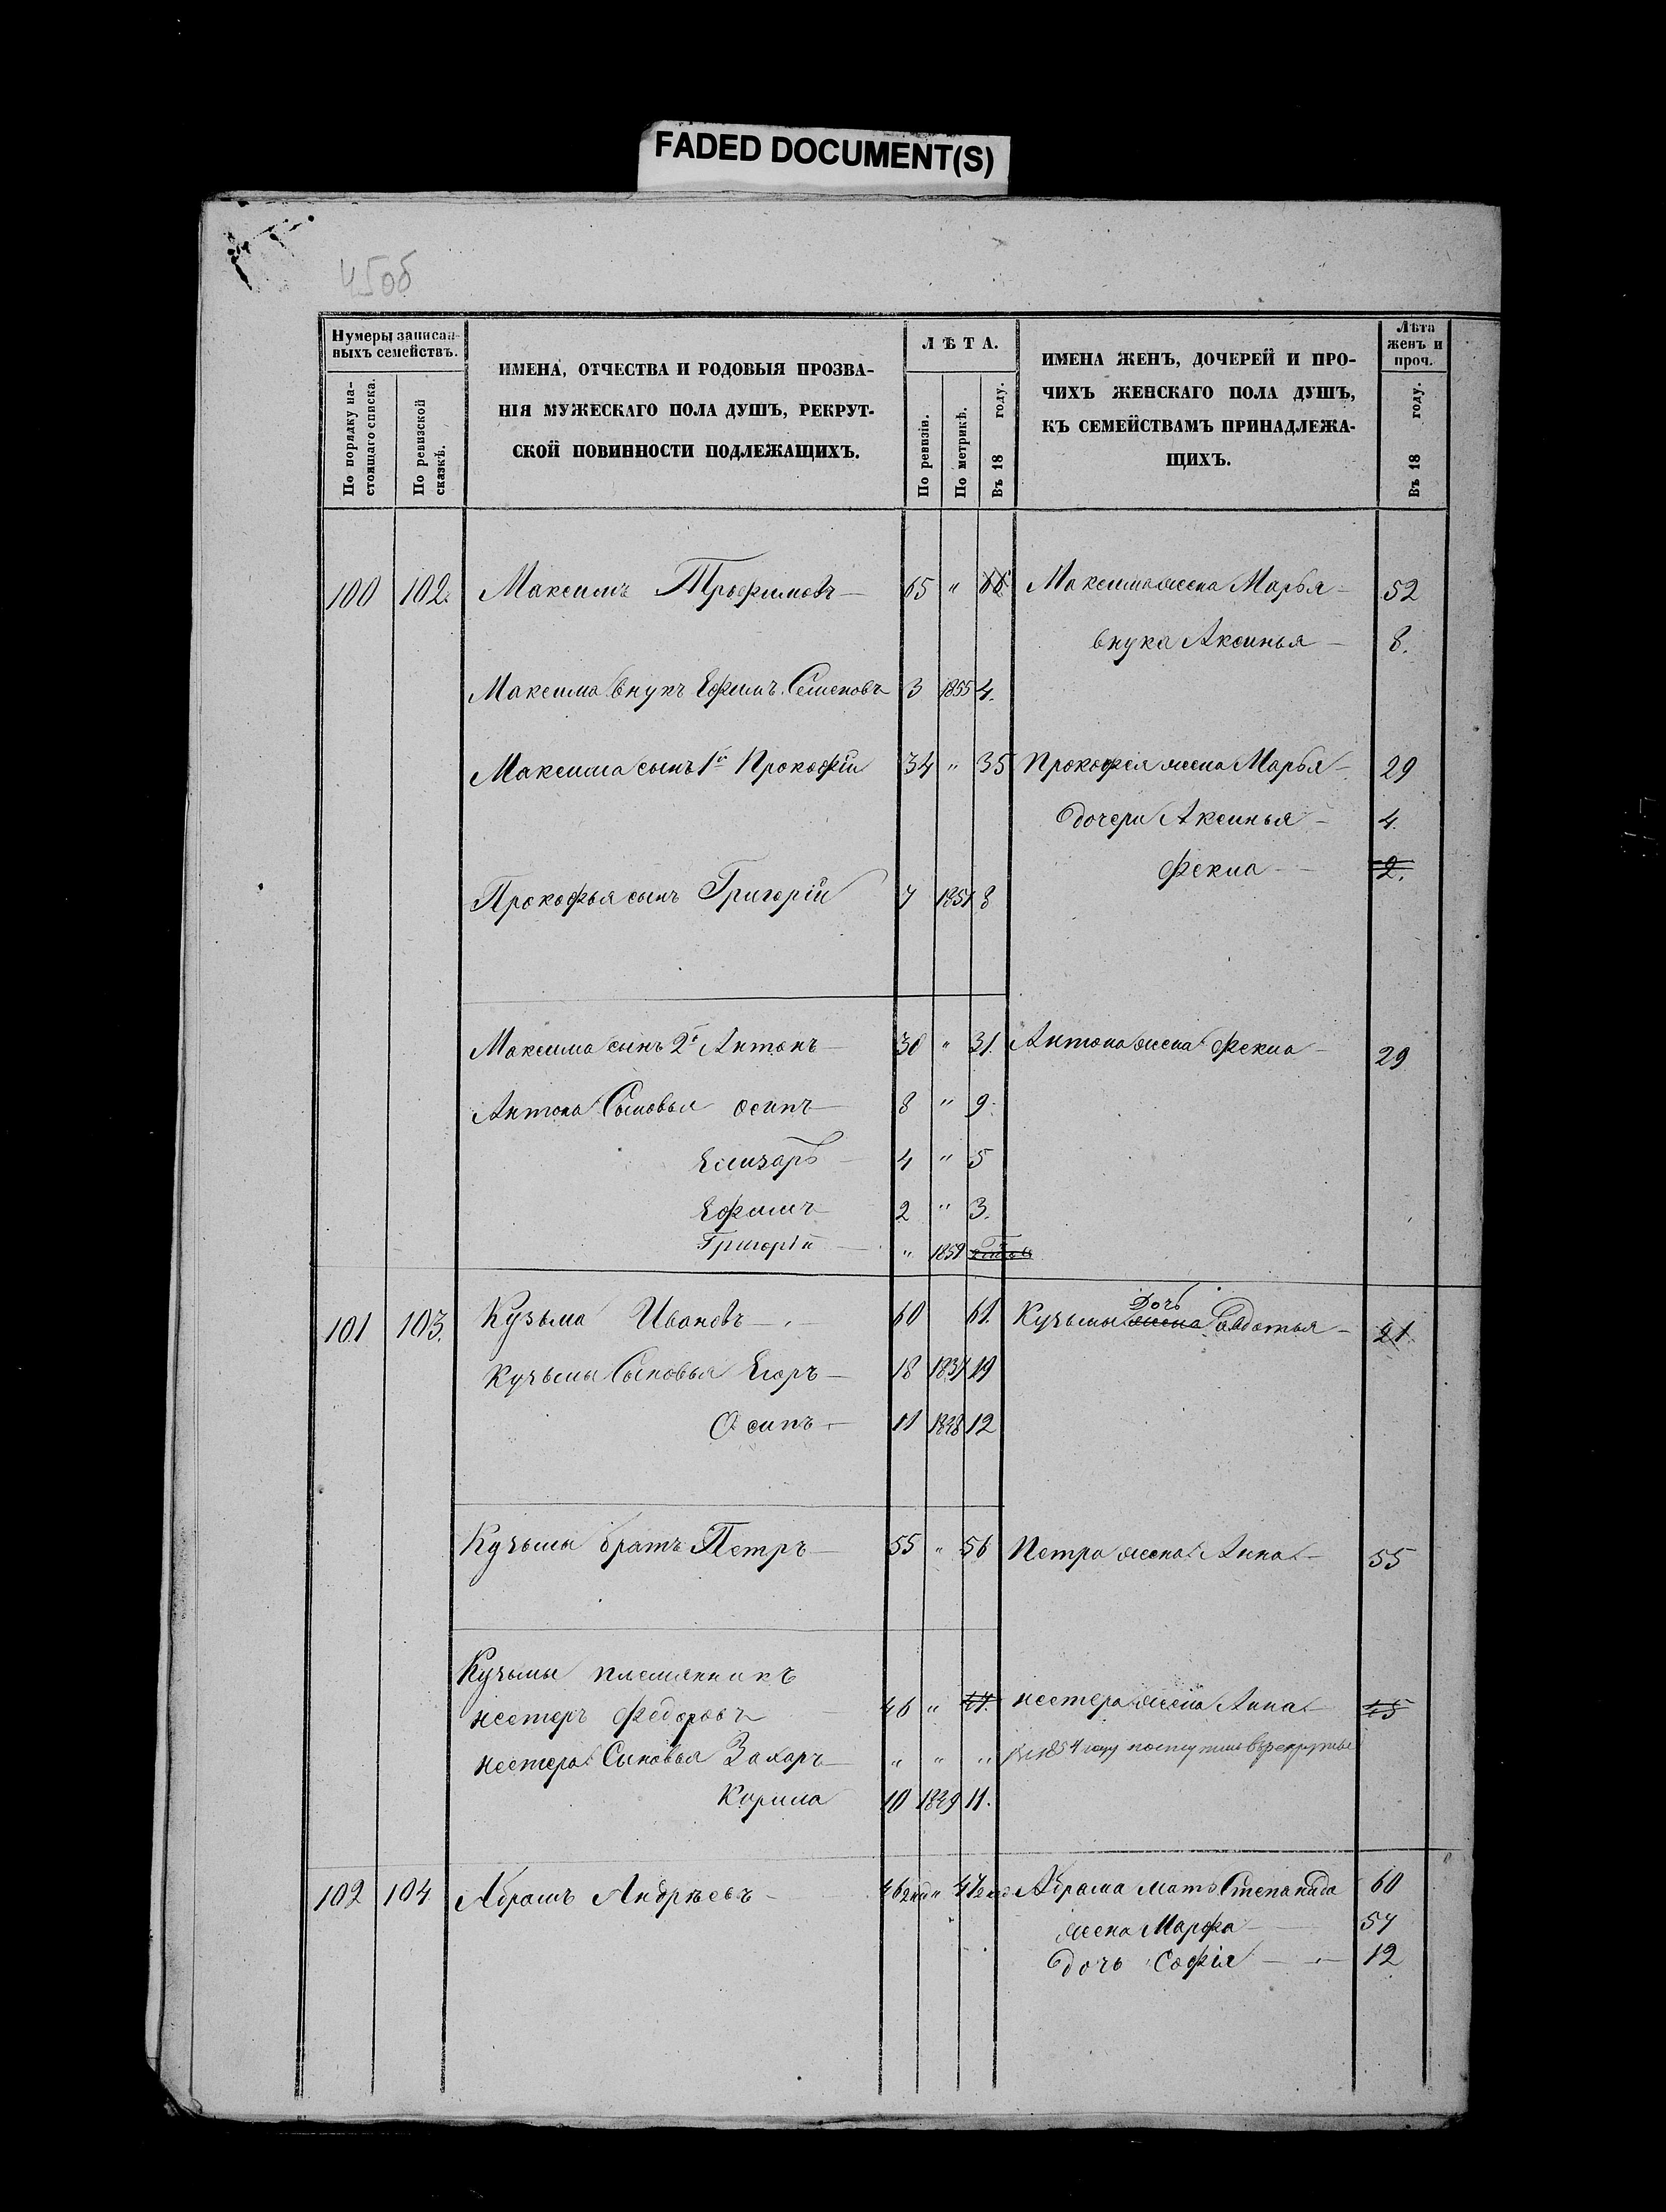 FADED DOCUMENT(S)
45об
Нумеры записан-
ныхъ семействъ.
По порядку на-
стоящаго списка.
По ревизской
сказкѣ.
ИМЕНА, ОТЧЕСТВА И РОДОВЫЯ ПРОЗВА-
НІЯ МУЖЕСКАГО ПОЛА ДУШЪ, РЕКРУТ-
СКОЙ ПОВИННОСТИ ПОДЛЕЖАЩИХЪ.
ЛѢТА.
По ревизіи.
По метрикѣ.
Въ 18 году.
ИМЕНА ЖЕНЪ, ДОЧЕРЕЙ И ПРО-
ЧИХЪ ЖЕНСКАГО ПОЛА ДУШЪ,
КЪ СЕМЕЙСТВАМЪ ПРИНАДЛЕЖА-
ЩИХЪ.
Лѣта
женъ и
проч.
Въ 18 году.
100 102. Максимъ Трофимовъ — 65 " 66 Максима жена Марья — 52
внука Аксинья — 8.
Максима внукъ Ефимъ Семеновъ 3 1855 4.
Максима сынъ 1й Прокофій 34 " 35 Прокофія жена Марья — 29
дочери Аксинья — 4.
Фекла — 2.
Прокофья сынъ Григорій 7 1851 8
Максима сынъ 2й Антонъ — 30 " 31. Антона жена Фекла — 29
Антона Сыновья Осипъ — 8 " 9.
Елизаръ — 4 " 5
Ефимъ — 2 " 3.
Григорій — " 1859
101 103. Кузьма Ивановъ — 60 61. Кузьмы жена Дочь Авдотья — 21
Кузьмы Сыновья Егоръ — 18 1837 19
Осипъ — 11 1848 12
Кузьмы братъ Петръ — 55 " 56 Петра жена Анна — 55
Кузьмы племянникъ
Нестеръ Федоровъ — 46 " 47. Нестера жена Анна — 45
Нестера Сыновья Захаръ — " " " въ 1854 году поступилъ въ рекруты
Корнила 10 1849 11.
102 104 Абрамъ Андреевъ — 46 " 47 Абрама мать Степанида 60
жена Марфа — 57
дочь Софія — 12